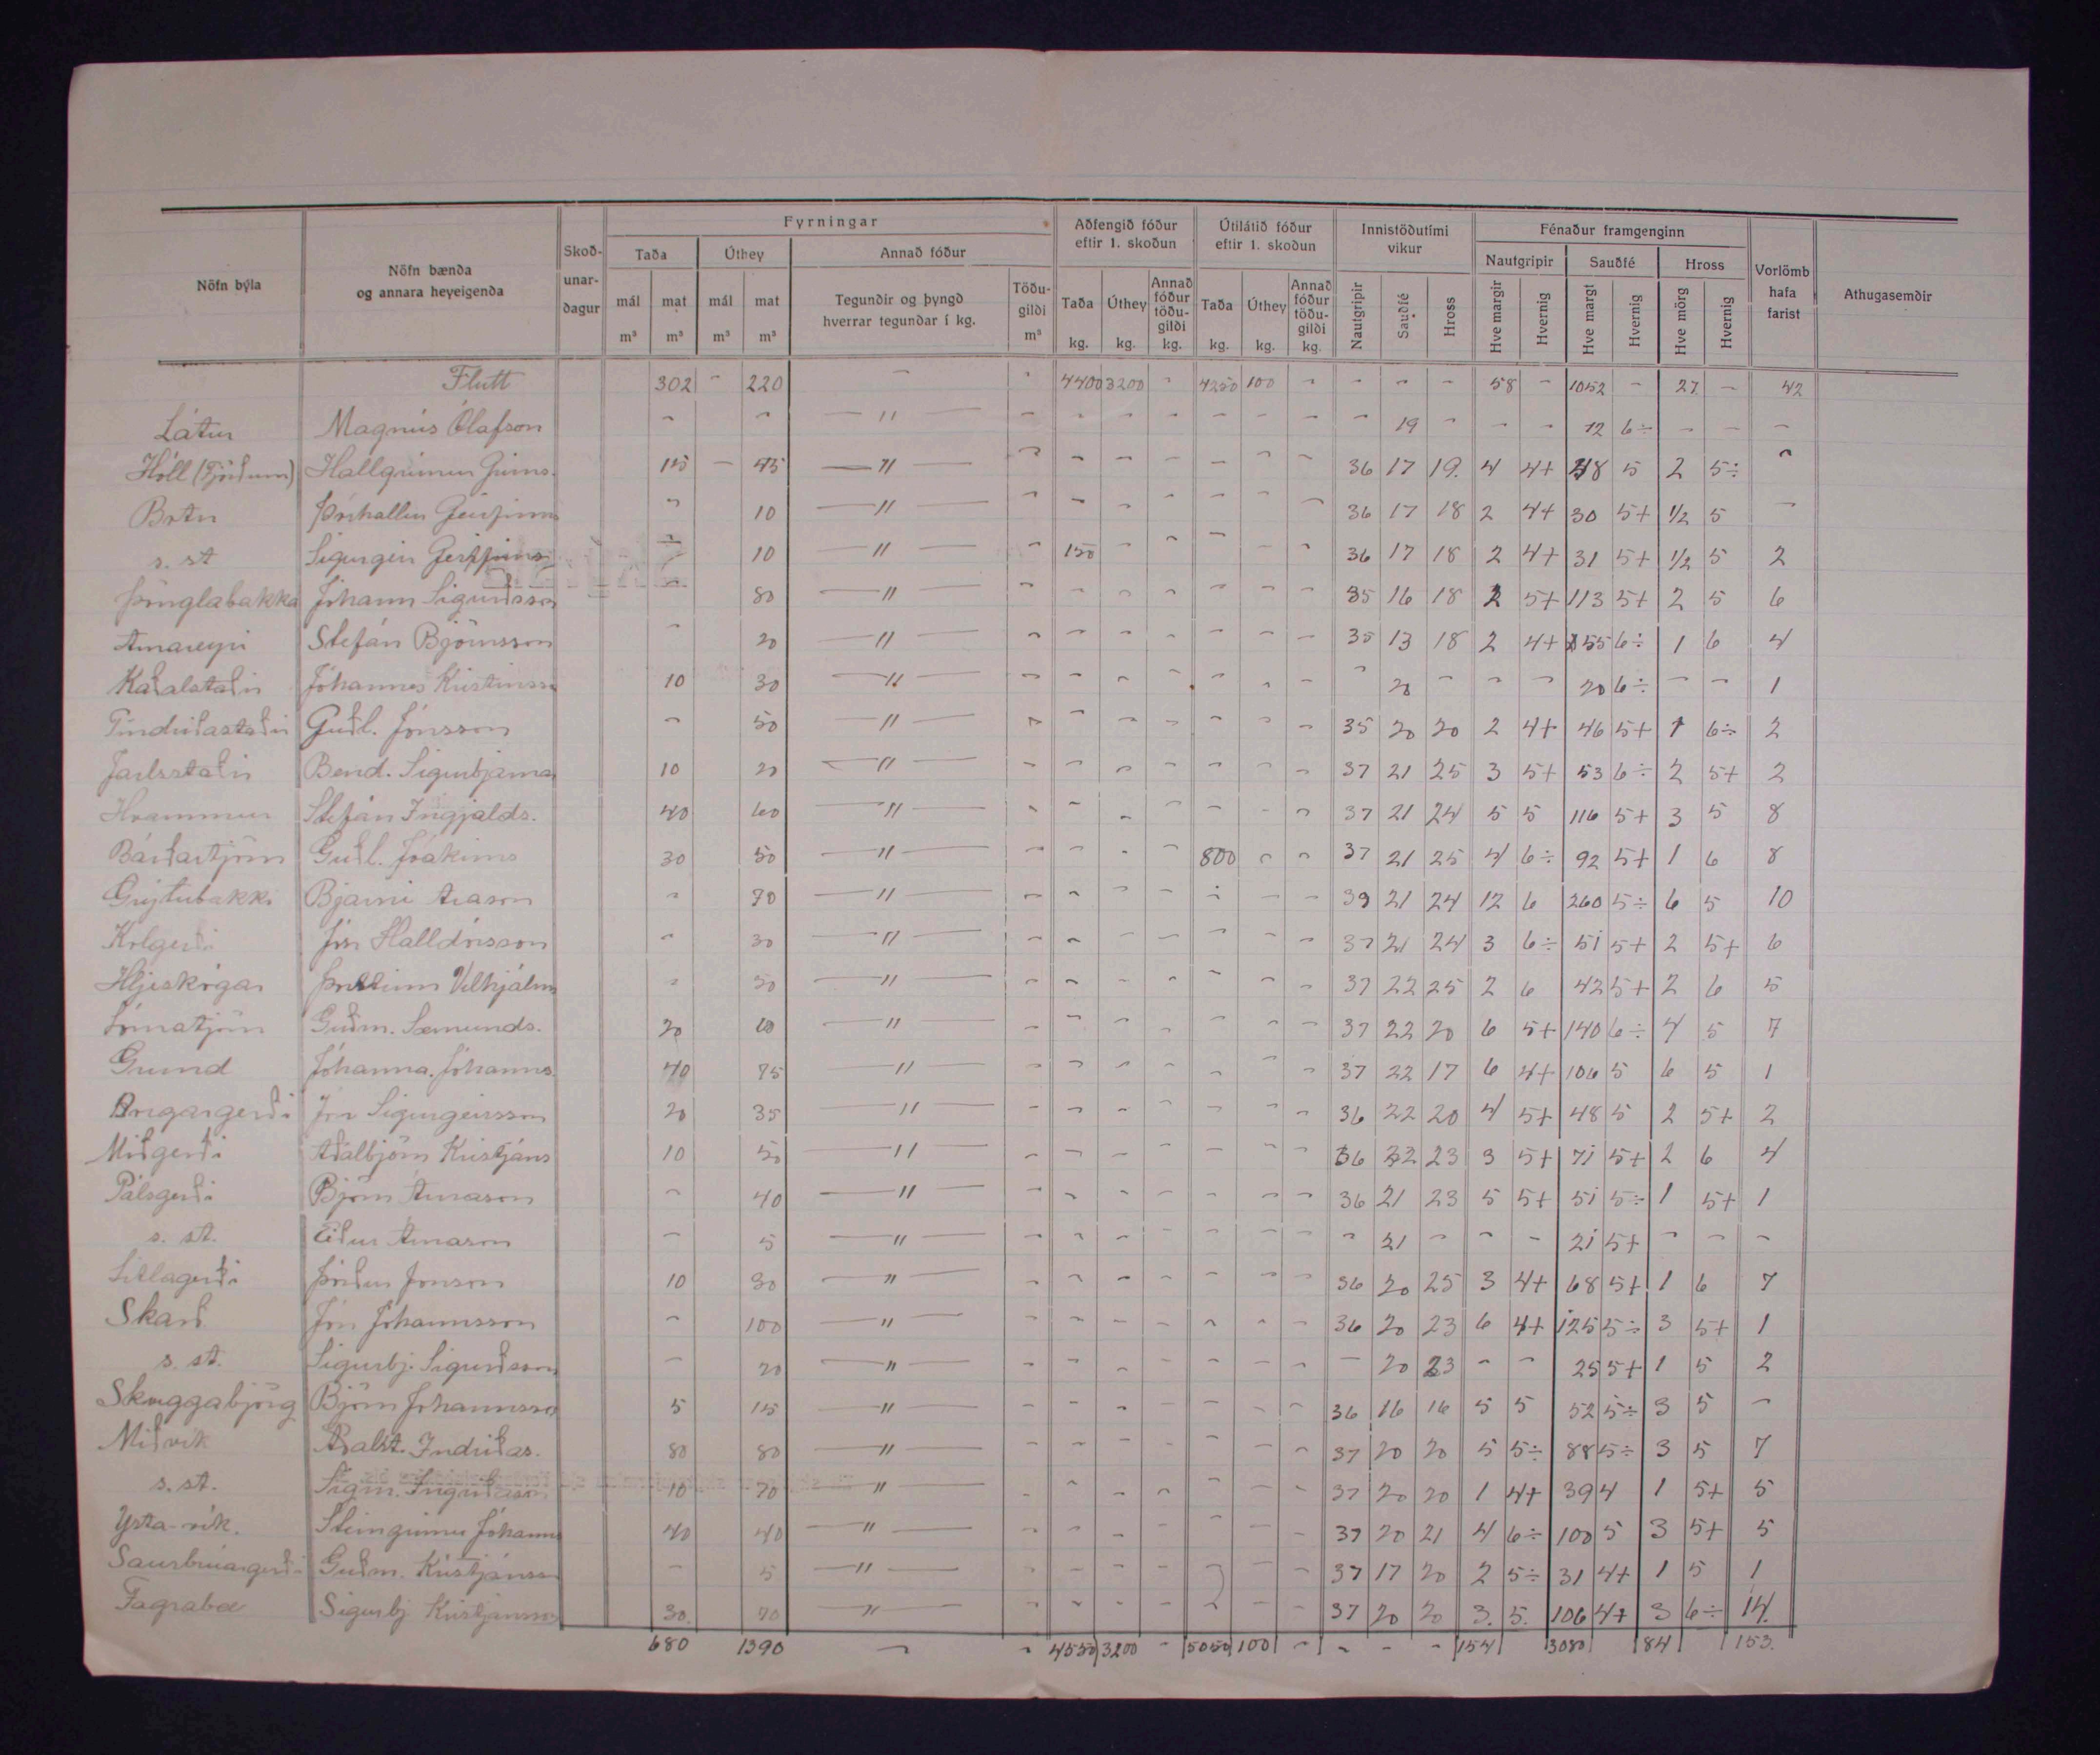 Nöfn býla | Nöfn bænda og annara heyeigenda | Skoðunardagur | Fyrningar | Aðfengið fóður eftir 1. skoðun | Útilátið fóður eftir 1. skoðun | Innistöðutími vikur | Fénaður framgenginn | Vorlömb hafa farist | Athugasemdir
Taða | Úthey | Annað fóður | Nautgripir | Sauðfé | Hross
mál m³ | mat m³ | mál m³ | mat m³ | Tegundir og þyngd hverrar tegundar í kg. | Töðugildi m³ | Taða kg. | Úthey kg. | Annað fóður töðugildi kg. | Taða kg. | Úthey kg. | Annað fóður töðugildi kg. | Nautgripir | Sauðfé | Hross | Hve margir | Hvernig | Hve margt | Hvernig | Hve mörg | Hvernig
Flutt 302 - 220 - - 4400 3200 - 4250 100 - - - - 58 - 1052 - 27 - 42
Látur Magnús Ólafson - - " - - - - - - - - 19 - - - 12 6÷ - - -
Hóll (Fjörðum) Hallgrímur Gríms. 115 - 45 " - - - - - - - 36 17 19. 4 4+ 48 5 2 5÷ -
Botn Þórhallur Geirfinns - 10 " - - - - - - - 36 17 18 2 4+ 30 5+ 1/2 5 -
s. st Sigurgeir Geirfinns - 10 " - 150 - - - - - 36 17 18 2 4+ 31 5+ 1/2 5 2
Þönglabakka Jóhann Sigurðsson - 80 " - - - - - - - 35 16 18 2 5+ 113 5+ 2 5 6
Arnareyri Stefán Björnsson - 20 " - - - - - - - 35 13 18 2 4+ 55 6÷ 1 6 4
Kaðalstaðir Jóhannes Kristinsso 10 30 " - - - - - - - - 20 - - - 20 6÷ - - 1
Tindriðastaðir Guðl. Jónsson - 50 " - - - - - - - 35 20 20 2 4+ 46 5+ 1 6÷ 2
Jarlsstaðir Bend. Sigurbjarna 10 20 " - - - - - - - 37 21 25 3 5+ 53 6÷ 2 5+ 2
Hvammur Stefán Ingjalds. 40 60 " - - - - - - - 37 21 24 5 5 116 5+ 3 5 8
Bárðartjörn Guðl. Jóakims 30 50 " - - - - 800 - - 37 21 25 4 6÷ 92 5+ 1 6 8
Grýtubakki Bjarni Arason - 70 " - - - - - - - 39 21 24 12 6 260 5÷ 6 5 10
Kolgerði Jón Halldórsson - 30 " - - - - - - - 37 21 24 3 6÷ 51 5+ 2 5+ 6
Hljeskógar Vilhjálm - 50 " - - - - - - - 37 22 25 2 6 42 5+ 2 6 5
Lómatjörn Guðm. Sæmunds. 20 60 " - - - - - - - 37 22 20 6 5+ 140 6÷ 4 5 7
Grund Jóhanna. Jóhanns. 40 75 " - - - - - - - 37 22 17 6 4+ 106 5 6 5 1
Ártargerði Jón Sigurgeirsson 20 35 " - - - - - - - 36 22 20 4 5+ 48 5 2 5+ 2
Miðgerði Aðalbjörn Kristjáns 10 50 " - - - - - - - 36 22 23 3 5+ 71 5+ 2 6 4
Pálsgerði Björn Árnason - 40 " - - - - - - - 36 21 23 5 5+ 51 5÷ 1 5+ 1
s. st. Eiður Árnason - 5 " - - - - - - - - 21 - - - 21 5+ - - -
Litlagerði Þórður Jonson 10 30 " - - - - - - - 36 20 25 3 4+ 68 5+ 1 6 7
Skarð Jón Jóhannsson - 100 " - - - - - - - 36 20 23 6 4+ 125 5÷ 3 5+ 1
s. st. Sigurbj. Sigurðsson - 20 " - - - - - - - - 20 23 - - 25 5+ 1 5 2
Skuggabjörg Björn Jóhannsso 5 115 " - - - - - - - 36 16 16 5 5 52 5÷ 3 5 -
Miðvík Aðalst. Indriðas. 80 80 " - - - - - - - 37 20 20 5 5÷ 88 5÷ 3 5 7
s. st. Sigm. 10 70 " - - - - - - - 37 20 20 1 4+ 39 4 1 5+ 5
Ysta-vík. Steingrímur Jóhanns 40 40 " - - - - - - - 37 20 21 4 6÷ 100 5 3 5+ 5
Saurbrúargerði Guðm. Kristjánsso - 5 " - - - - - - - 37 17 20 2 5÷ 31 4+ 1 5 1
Fagrabæ Sigurbj Kristjánsso 30. 70 " - - - - - - - 37 20 20 3. 5. 106 4+ 3 6÷ 14.
680 1390 - - 4550 3200 - 5050 100 - - - - 154 3080 84 153.